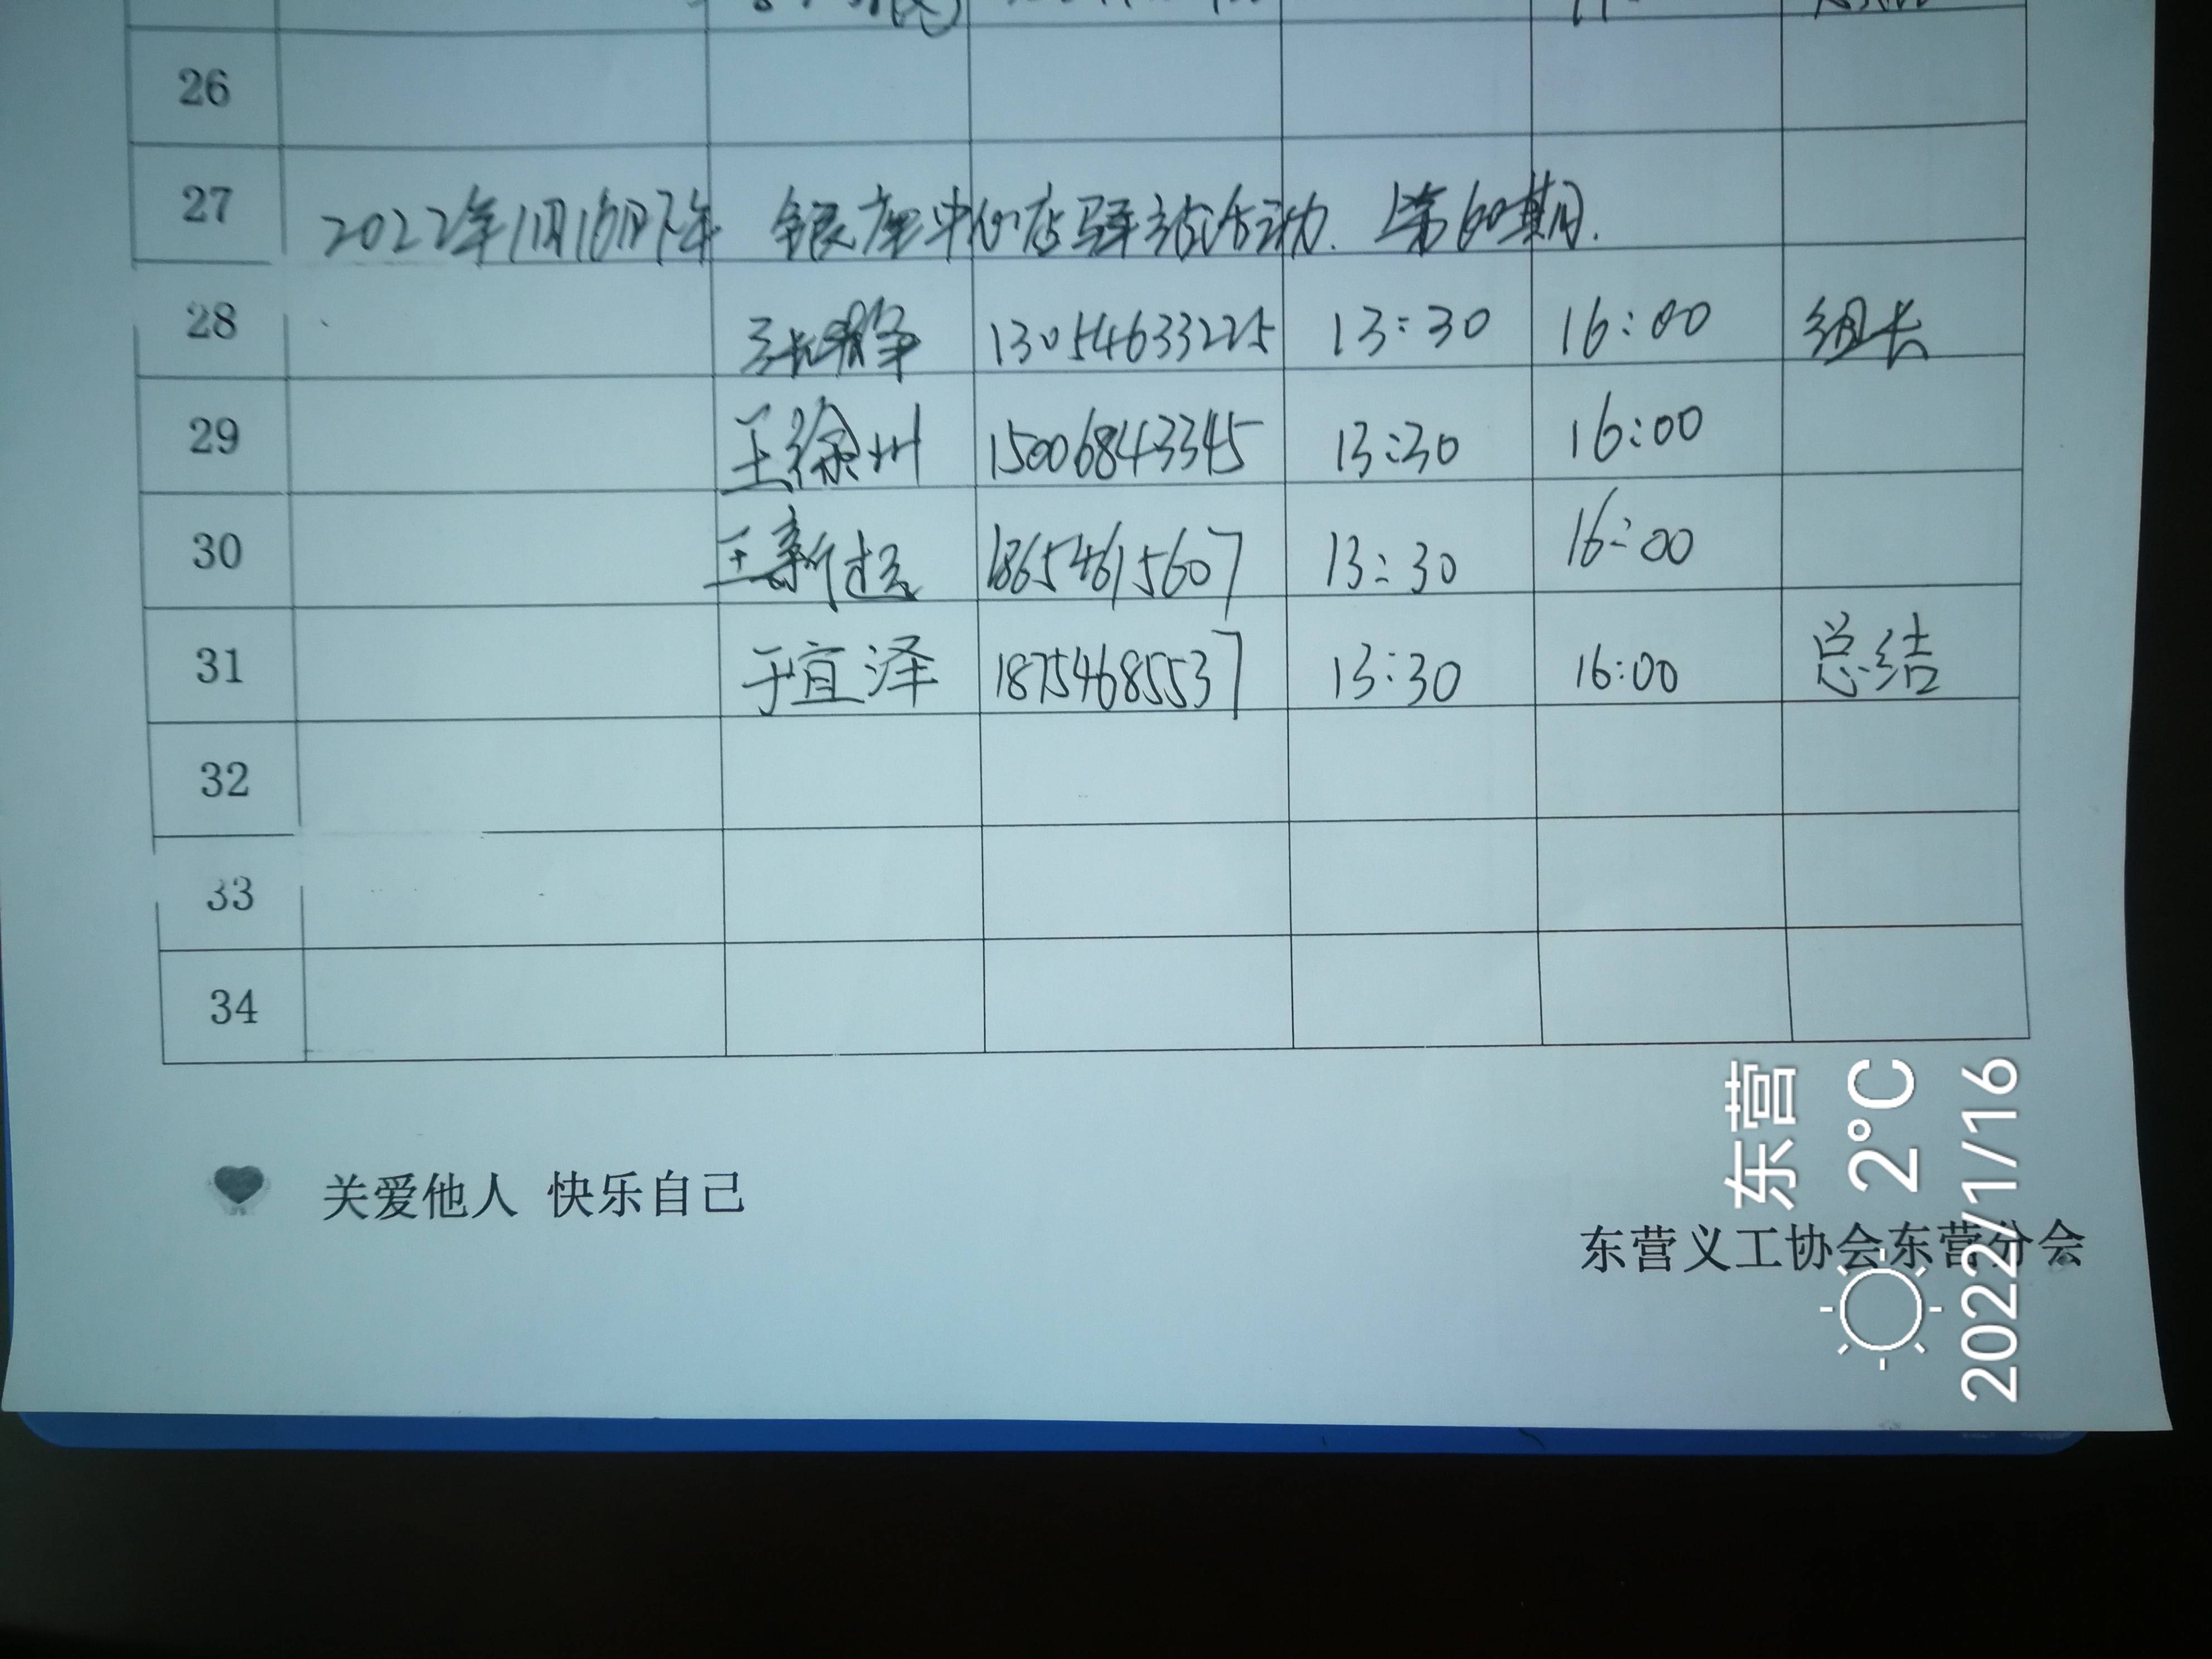 26
27 2022年1月16日下午 银座中心店驿站活动. 第60期.
28 13054633225 13:30 16:00 组长
29 王徐州 15006843345 13:30 16:00
30 王新远 18654615607 13:30 16:00
31 于宜泽 18754685537 13:30 16:00 总结
32
33
34
关爱他人 快乐自己
东营义工协会东营分会
东营
2°C
2022/1/16